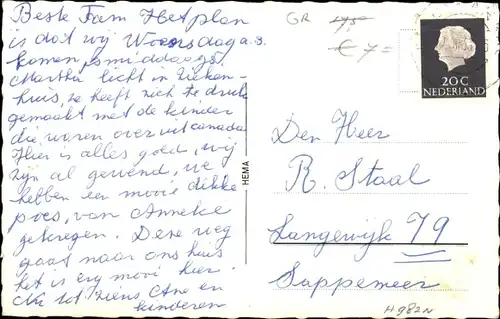 Beste Fam Hetplan
is dat wij Woensdag a.s.
komen, smiddaags
Martha licht in Zieken-
huis, ze heeft zich te druk
gemaakt met de kinder
die waren over uit canada
Hier is alles goed, wij
zijn al gewend, we
hebben een mooie dikke
poes, van Anneke
gekregen. Deze weg
gaat naar ons huis
het is erg mooi hier.
Nu tot ziens Ane en
kinderen
GR
€ 7=
20 C
NEDERLAND
HEMA
Den Heer
R. Staal
Langewijk 79
Sappemeer
H982N